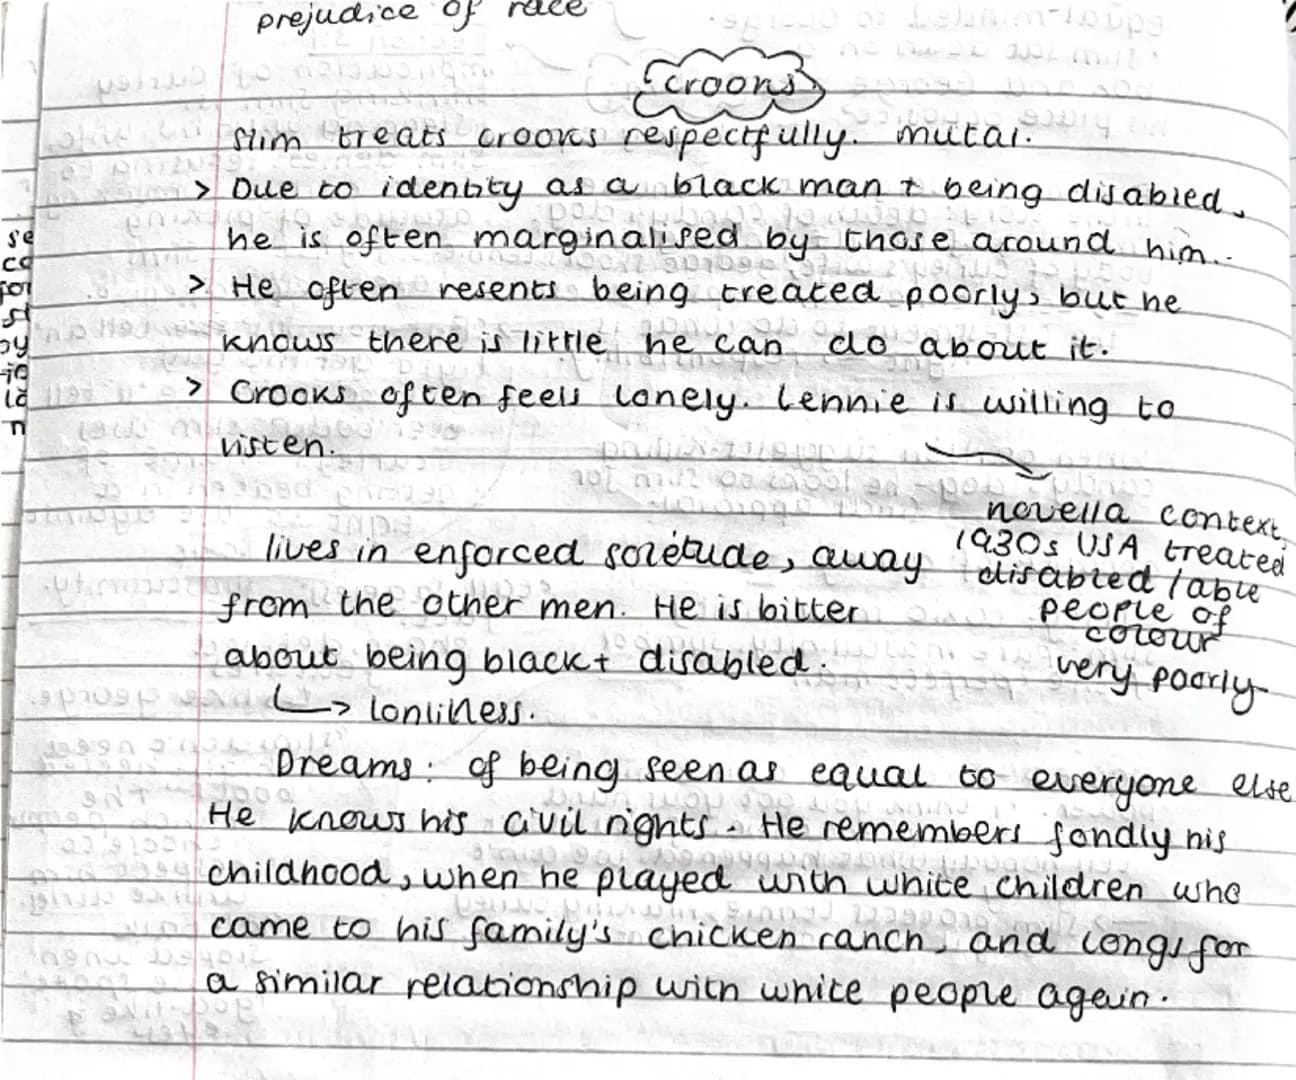 prejudice of race
crooks
Slim treats crooks respectfully. mutal.
> Due to identity as a black man + being disabled,
he is often marginalised by those around him.
> He often resents being treated poorly, but he
knows there is little he can do about it.
> Crooks often feels lonely. Lennie is willing to
listen.
novella context,
1930s USA treated
disabled / able
people of
colour
very poorly
lives in enforced soletude, away
from the other men. He is bitter
about being black + disabled.
↳ lonliness.
Dreams: of being seen as equal to everyone else
He knows his civil rights. He remembers fondly his
childhood, when he played with white children who
came to his family's chicken ranch, and longs for
a similar relationship with white people again.